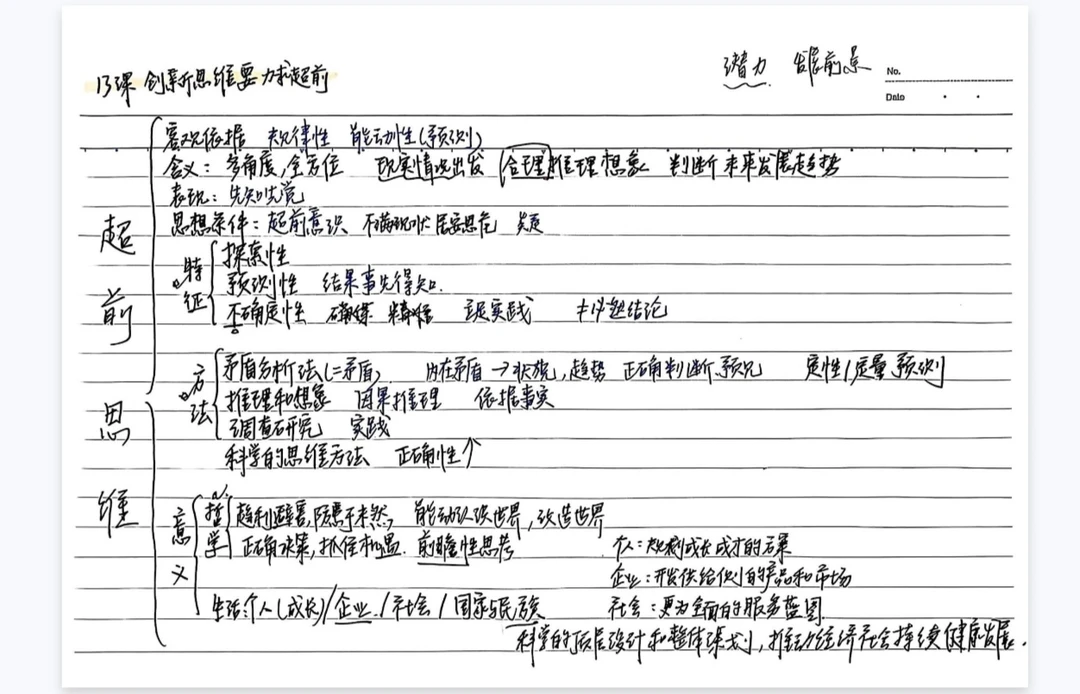 13课 创新思维要力求超前
潜力 发展前景
No.
Date
超前思维
客观依据 规律性 能动性(预测)
含义：多角度,全方位 现实情况出发 合理推理想象 判断未来发展趋势
表现：先知先觉
思想条件：超前意识 不满现状 居安思危
特征
探索性
预测性 结果事先得知.
不确定性 实践 ≠必然结论
方法
矛盾分析法(=矛盾) 内在矛盾→状况,趋势 正确判断、预见 定性/质量预测
推理和想象 因果推理 依据事实
调查研究 实践
科学的思维方法 正确性↑
意义
哲学
趋利避害,防患于未然, 能动认识世界,改造世界
正确决策,抓住机遇. 前瞻性思考
个人：规划成长成才的
企业：开发供给侧的产品和市场
生活:个人(成长)/企业/社会/国家与民族
社会：更为全面的服务蓝图
科学的顶层设计和整体谋划,推动经济社会持续健康发展.